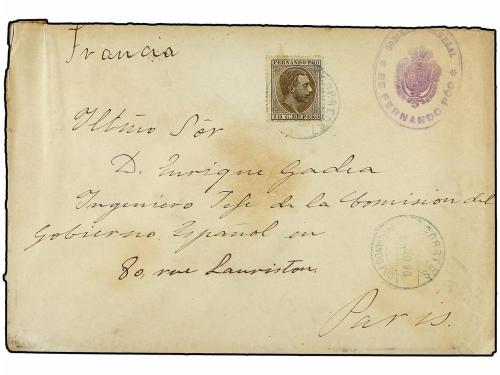 Francia
FERNANDO POO
10 C. DE PESO
GOBIERNO GENERAL
DE FERNANDO PÓO
CORREOS
Iltmo Sôr
D. Enrique Gadea
Ingeniero Jefe de la Comision del
Gobierno Español en
80, rue Lauriston.
CORREOS
Paris.